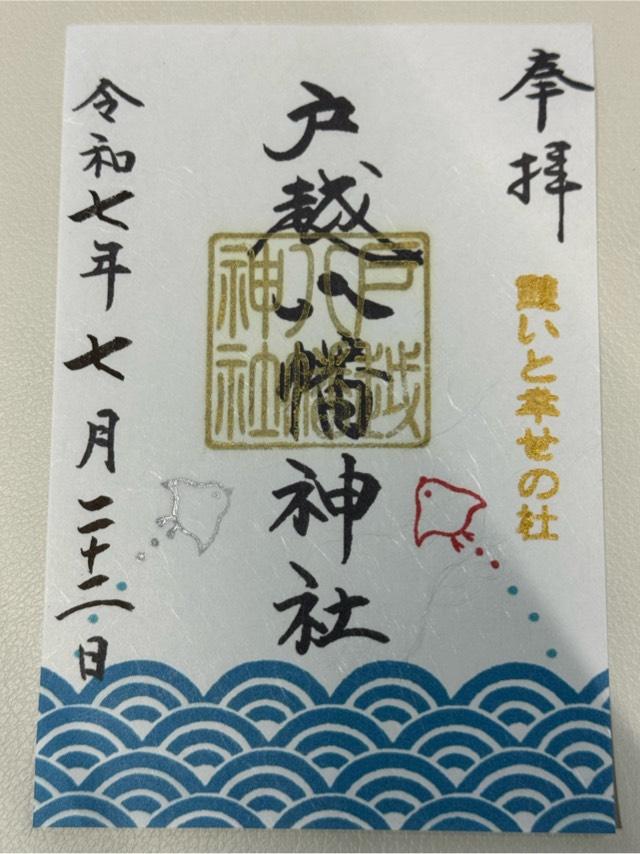 奉拝
願いと幸せの社
戸越八幡神社
戸越
八幡
神社
令和七年七月二十二日